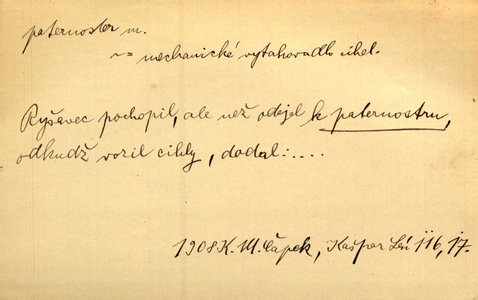 paternoster m.
~= mechanické vytahovadlo cihel.
Ryšavec pochopil, ale než odejel k paternostru,
odkudž vozil cihly, dodal:....
1908 K. M. Čapek, Kašpar Lén 116, 17.